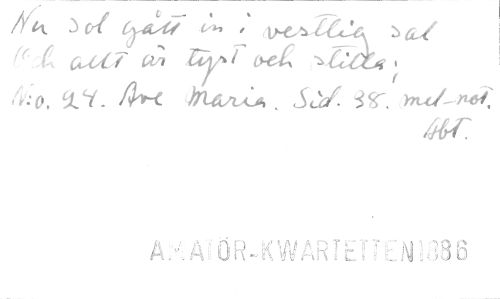 Nu sol gått in i vestlig sal
Och allt är tyst och stilla;
N:o. 24. Ave Maria. Sid. 38. mel-not.
Abt.
AMATÖR-KWARTETTEN 1886